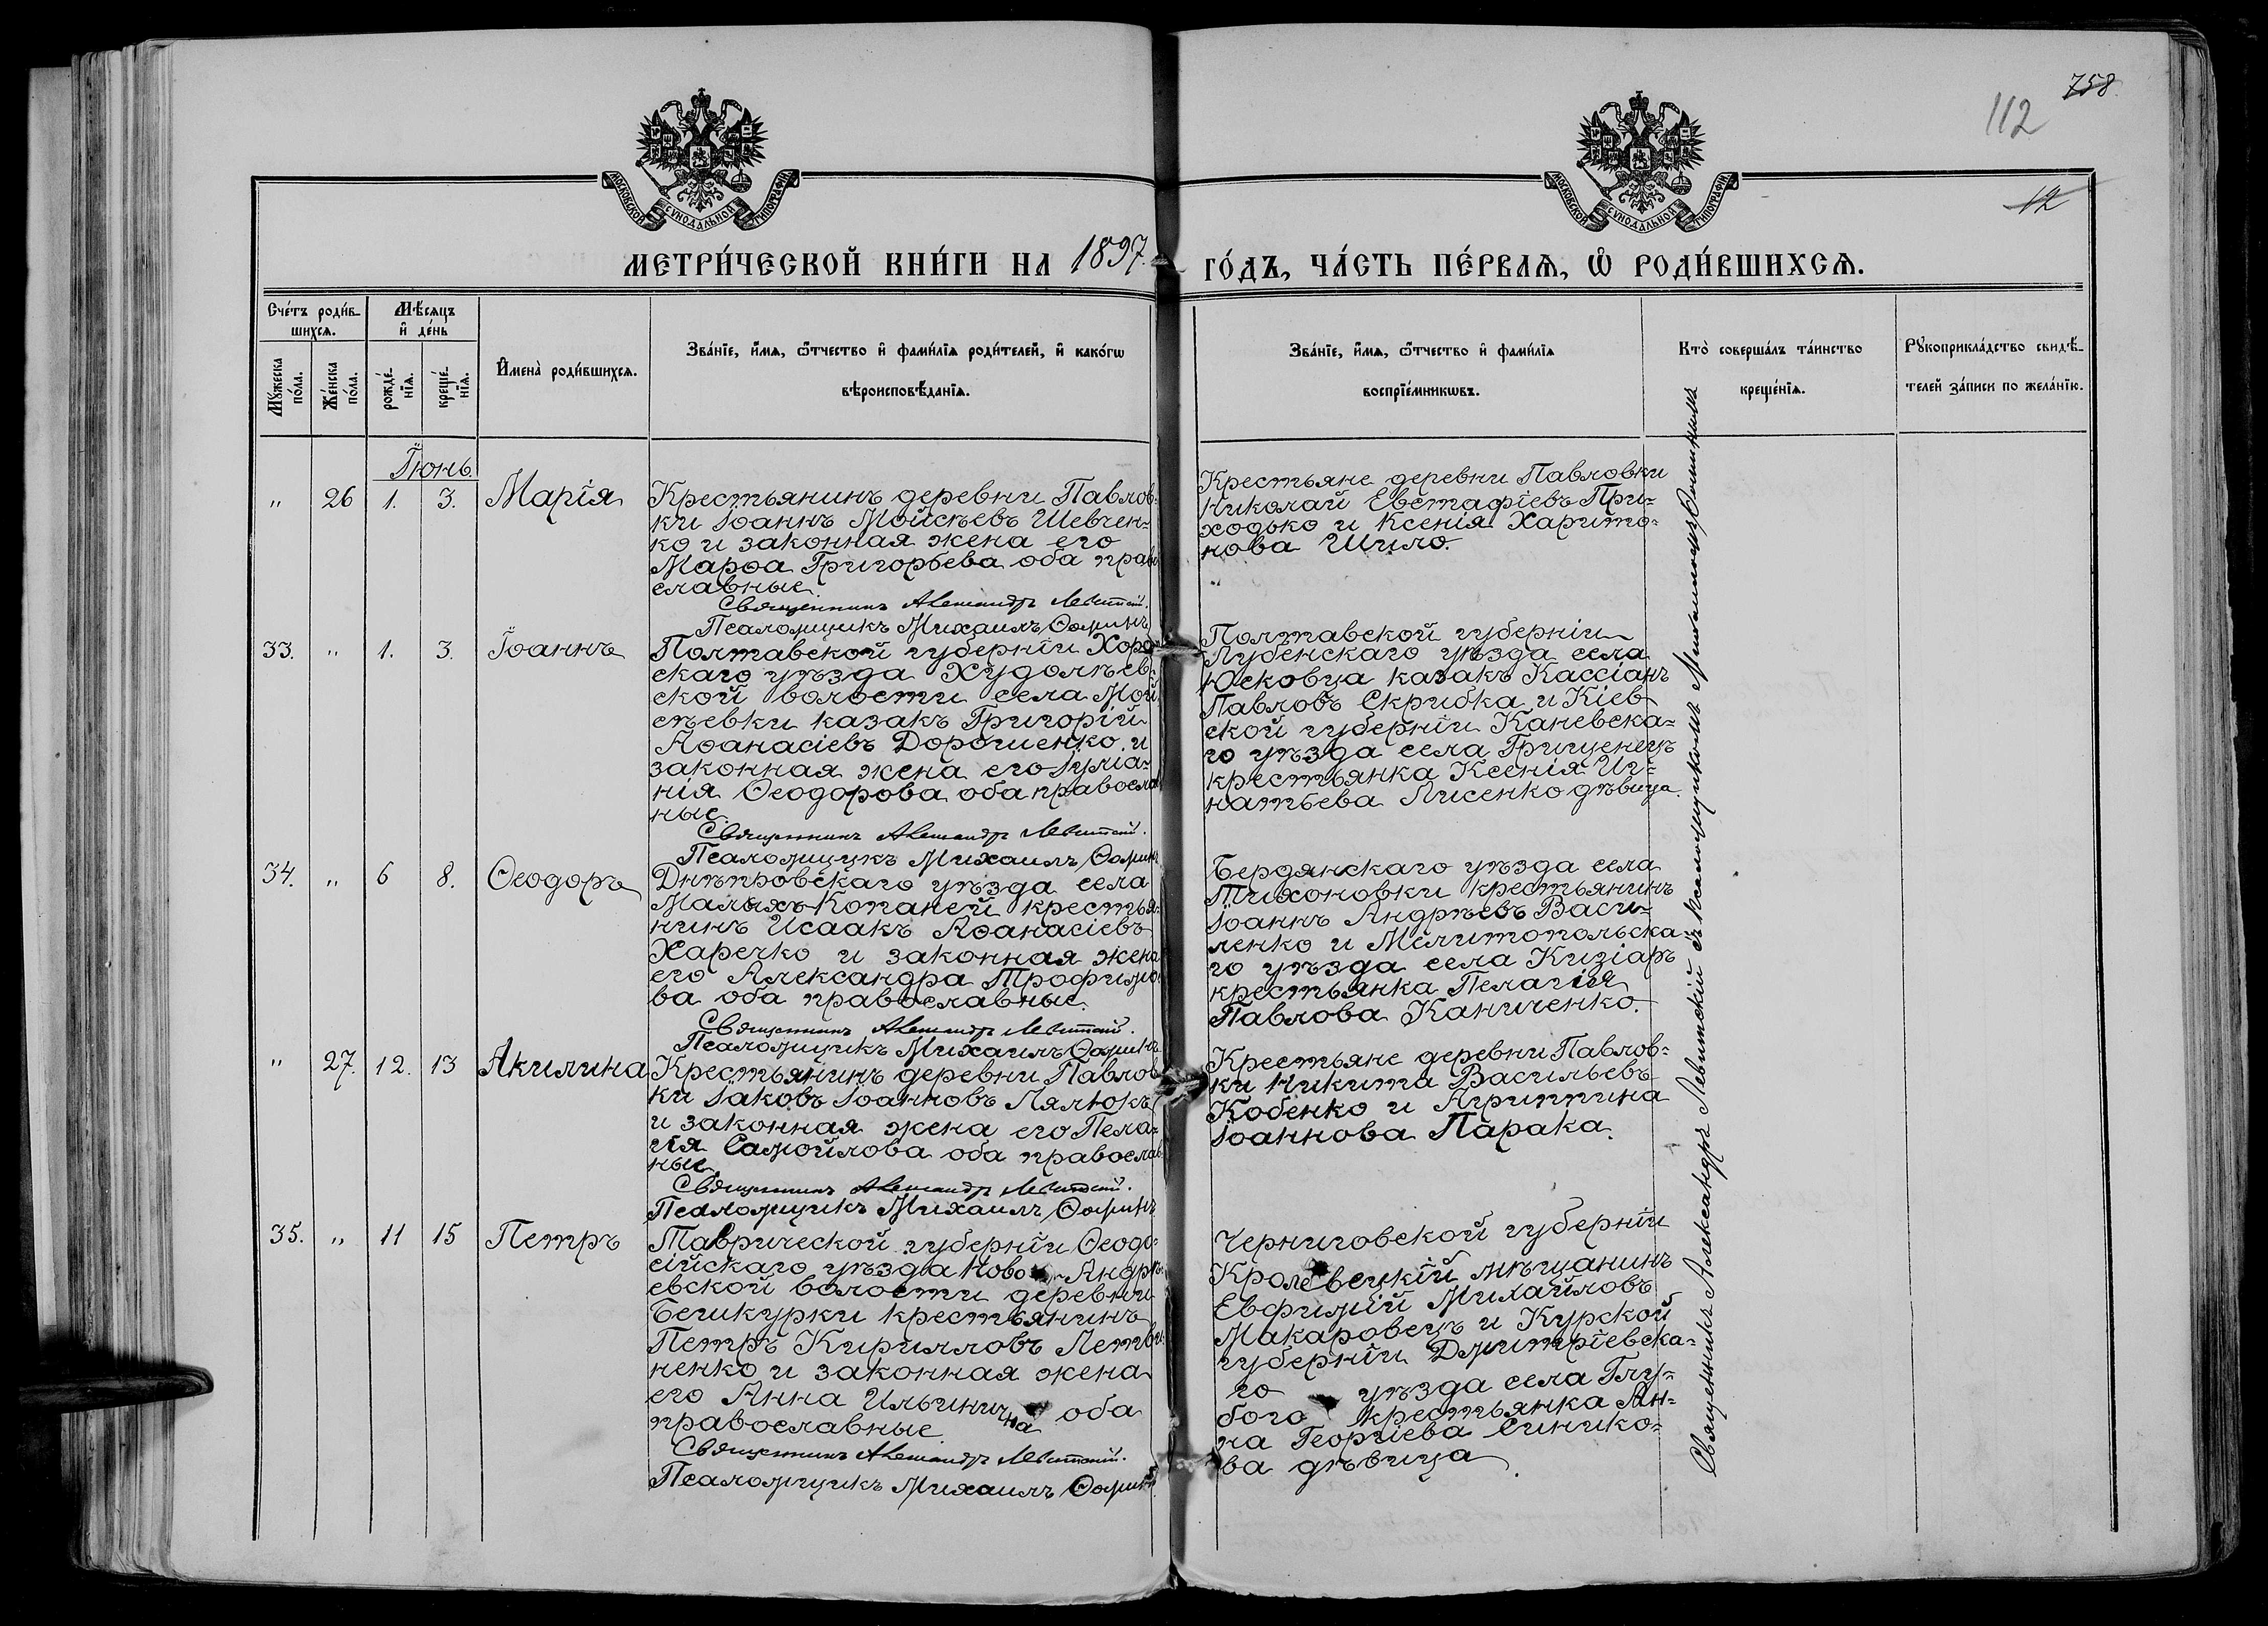 758
112
12
МОСКОВСКОЙ СУНОДАЛЬНОЙ ТИПОГРАФІИ
МОСКОВСКОЙ СУНОДАЛЬНОЙ ТИПОГРАФІИ
МЕТРИ́ЧЕСКОЙ КНИ́ГИ НА 1897. ГО́ДЪ, ЧА́СТЬ ПЕ́РВАѦ, Ѡ҆ РОДИ́ВШИХСѦ.
Сче́тъ роди́в-
шихсѧ.
Мѣ́сѧцъ
и҆ де́нь
Му́жеска
по́ла.
Же́нска
по́ла.
рожде́-
нїѧ.
креще́-
нїѧ.
И҆мена̀ роди́вшихсѧ.
Зва́нїе, и҆́мѧ, ѻ҆́тчество и҆ фами́лїѧ роди́телей, и҆ како́гѡ
вѣроисповѣ́данїѧ.
Зва́нїе, и҆́мѧ, ѻ҆́тчество и҆ фами́лїѧ
воспрїе́мникѡвъ.
Кто̀ соверша́лъ та́инство
креще́нїѧ.
Рꙋкоприкла́дство свидѣ́-
телей за́писи по жела́нїю.
Іюнь.
" 26 1. 3. Марія
Крестьянинъ деревни Павлов-
ки Іоаннъ Мойсѣевъ Шевчен-
ко и законная жена его
Марѳа Григорьева оба право
славные.
Священникъ Александръ Левитскій.
Псаломщикъ Михаилъ Ѳоминъ
Крестьяне деревни Павловки
Николай Евстафіевъ При-
ходько и Ксенія Харито-
нова Шило.
33. " 1. 3. Іоаннъ
Полтавской губерніи Хороль
скаго уѣзда Худолѣев-
ской волости села Мой
сѣевки казакъ Григорій
Аѳанасіевъ Дорошенко и
законная жена его Іуліа-
нія Ѳеодорова оба православ
ные.
Священникъ Александръ Левитскій.
Псаломщикъ Михаилъ Ѳоминъ
Полтавской губерніи
Лубенскаго уѣзда села
Юсковца казакъ Кассіанъ
Павловъ Скрибка и Кіев
ской губерніи Каневска-
го уѣзда села Грищенецъ
крестьянка Ксенія Иг-
натьева Лисенко дѣвица.
34. " 6 8. Ѳеодоръ
Днѣпровскаго уѣзда села
Малыхъ-Копаней крестья-
нинъ Исаакъ Аѳанасіевъ
Харечко и законная жена
его Александра Трофимо-
ва оба православные.
Священникъ Александръ Левитскій.
Псаломщикъ Михаилъ Ѳоминъ
Бердянскаго уѣзда села
Тихоновки крестьянинъ
Іоаннъ Андрѣевъ Васи-
ленко и Мелитопольска-
го уѣзда села Кизіаръ
крестьянка Пелагія
Павлова Каниченко.
" 27. 12. 13 Акилина
Крестьянинъ деревни Павлов
ки Іаковъ Іоанновъ Лялюкъ
и законная жена его Пела-
гія Самойлова оба православ
ные.
Священникъ Александръ Левитскій.
Псаломщикъ Михаилъ Ѳоминъ
Крестьяне деревни Павлов-
ки Никита Васильевъ
Кобенко и Агриппина
Іоаннова Парака.
35. " 11 15 Петръ
Таврической губерніи Ѳеодо-
сійскаго уѣзда Ново-Андрѣ-
евской волости деревни
Бешкурки крестьянинъ
Петръ Кирилловъ Летви-
ненко и законная жена
его Анна Ильинична оба
православные
Священникъ Александръ Левитскій.
Псаломщикъ Михаилъ Ѳоминъ.
Черниговской губерніи
Кролевецкій мѣщанинъ
Евфимій Михайловъ
Макаровецъ и Курской
губерніи Дмитріевска-
го уѣзда села Глу-
бого крестьянка Ан-
на Георгіева Синико-
ва дѣвица.
Священникъ Александръ Левитскій съ псаломщикомъ Михаиломъ Ѳоминымъ